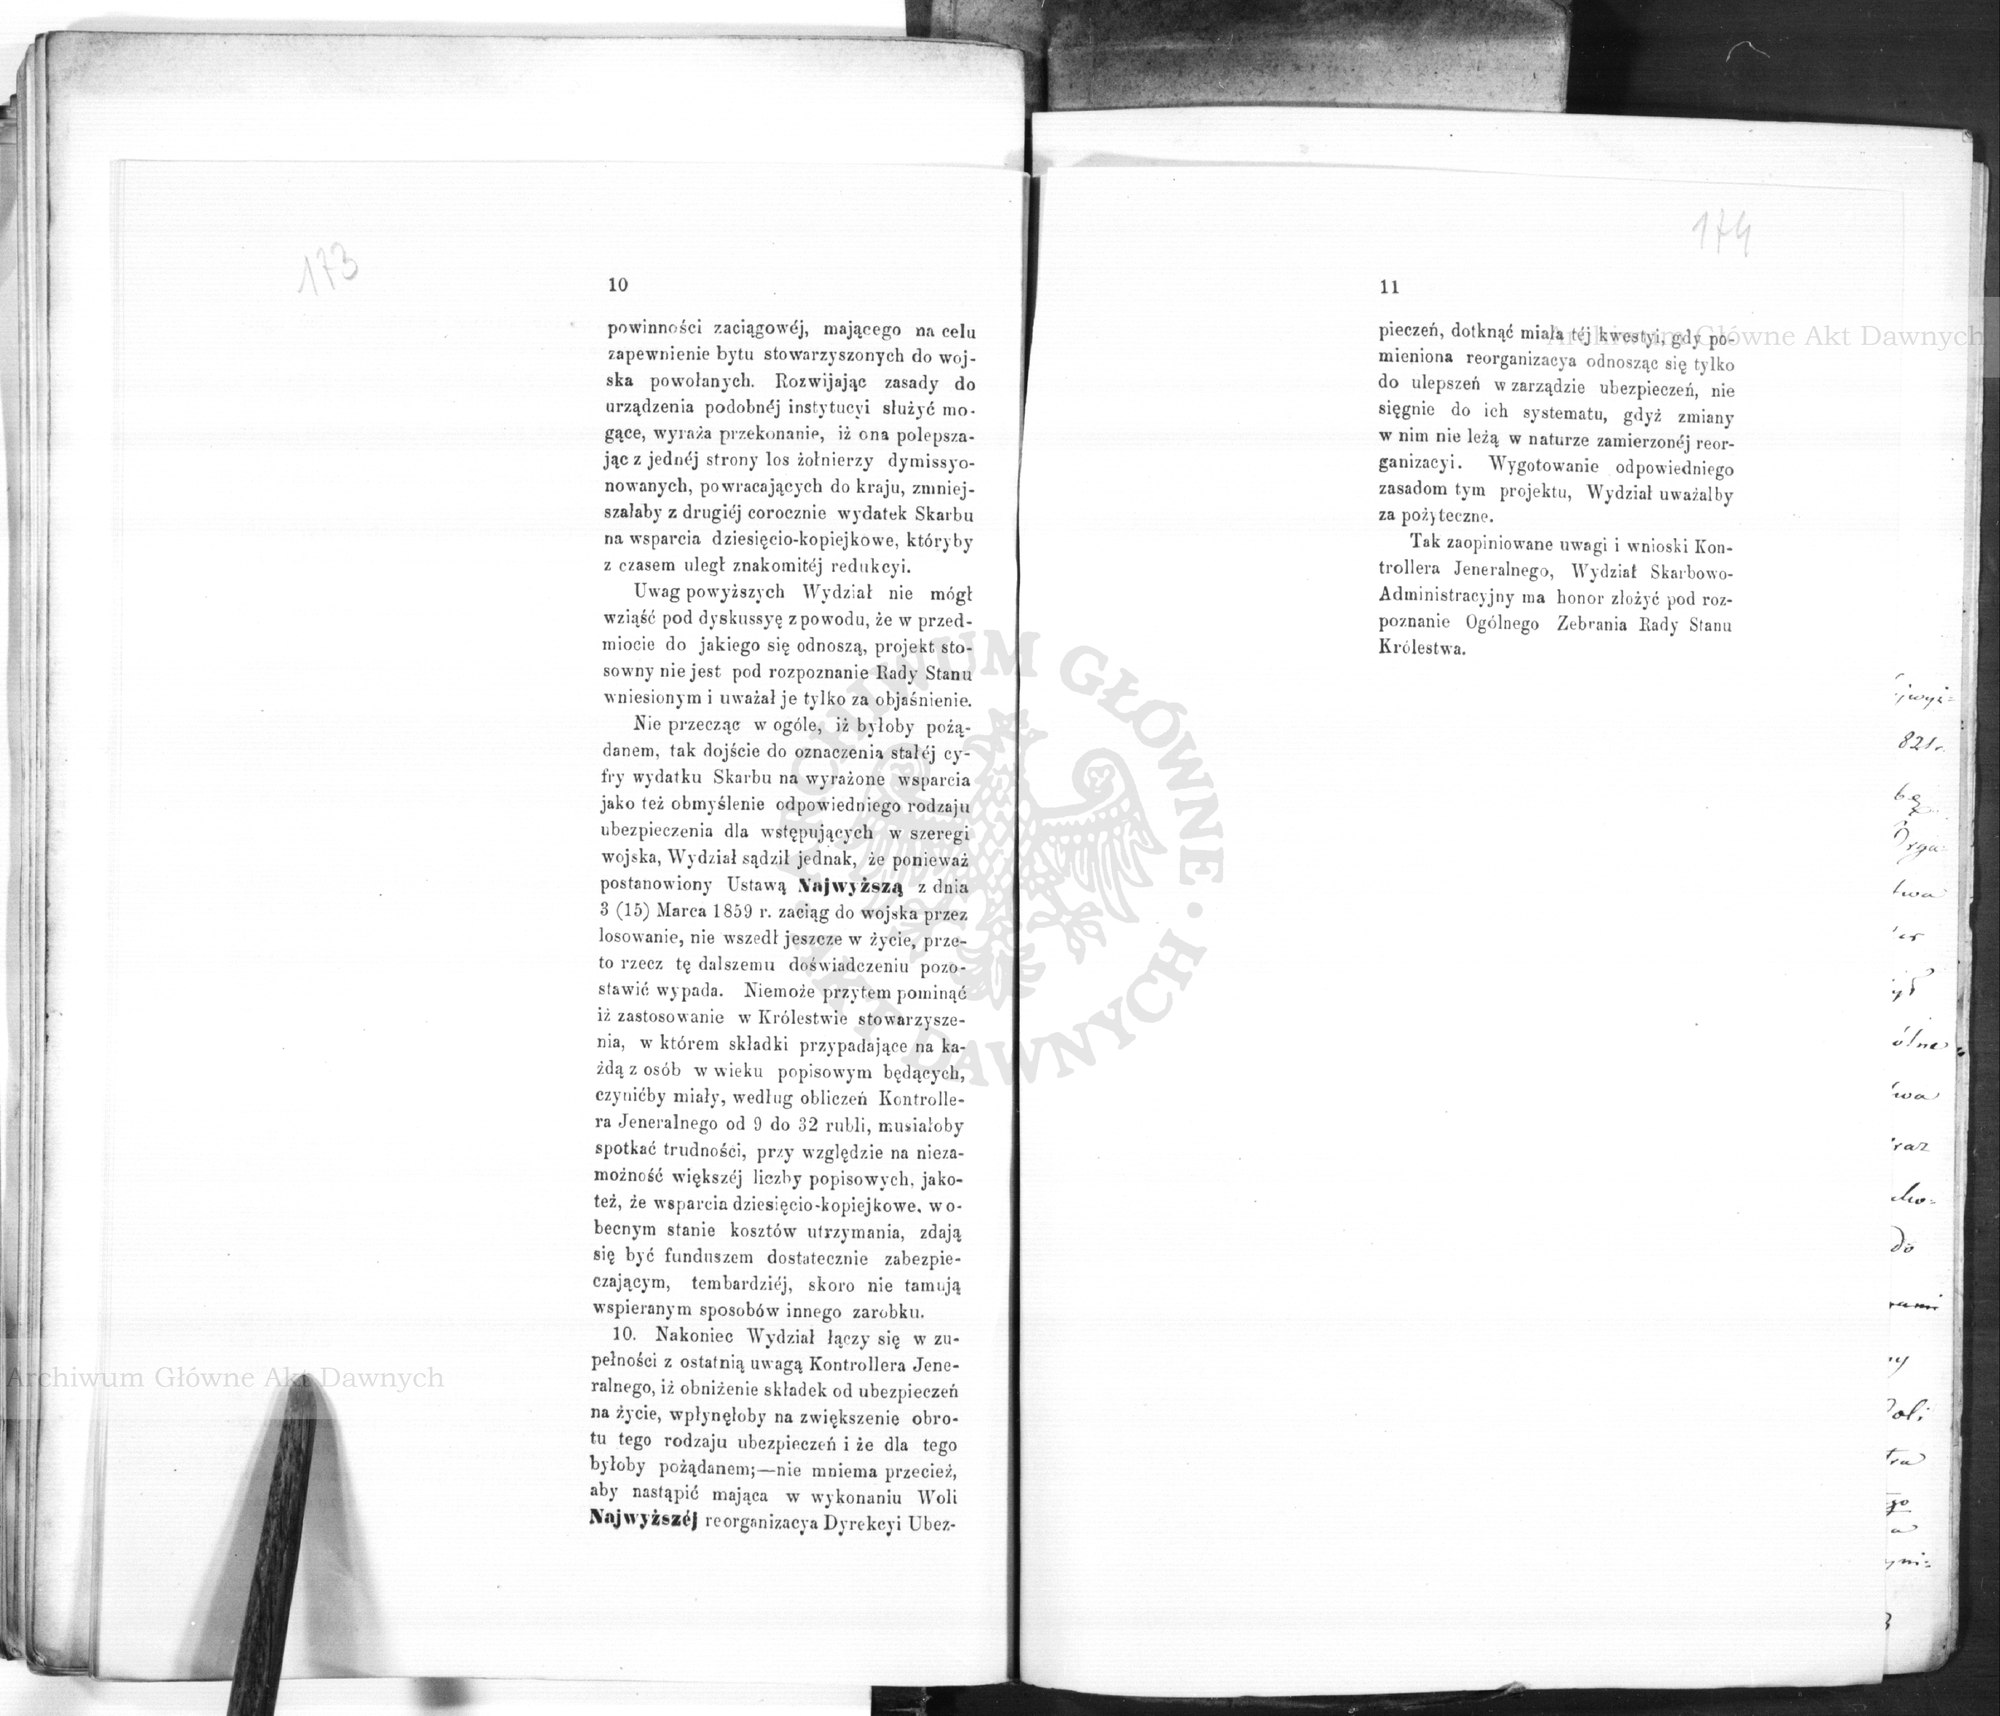 173
10
powinności zaciągowéj, mającego na celu
zapewnienie bytu stowarzyszonych do woj-
ska powołanych. Rozwijając zasady do
urządzenia podobnéj instytucyi służyć mo-
gące, wyraża przekonanie, iż ona polepsza-
jąc z jednéj strony los żołnierzy dymissyo-
nowanych, powracających do kraju, zmniej-
szałaby z drugiéj corocznie wydatek Skarbu
na wsparcia dziesięcio-kopiejkowe, któryby
z czasem uległ znakomitéj redukcyi.
Uwag powyższych Wydział nie mógł
wziąść pod dyskussyę z powodu, że w przed-
miocie do jakiego się odnoszą, projekt sto-
sowny nie jest pod rozpoznanie Rady Stanu
wniesionym i uważał je tylko za objaśnienie.
Nie przecząc w ogóle, iż byłoby pożą-
danem, tak dojście do oznaczenia stałéj cy-
fry wydatku Skarbu na wyrażone wsparcia
jako też obmyślenie odpowiedniego rodzaju
ubezpieczenia dla wstępujących w szeregi
wojska, Wydział sądził jednak, że ponieważ
postanowiony Ustawą Najwyższą z dnia
3 (15) Marca 1859 r. zaciąg do wojska przez
losowanie, nie wszedł jeszcze w życie, prze-
to rzecz tę dalszemu doświadczeniu pozo-
stawić wypada. Niemoże przytem pominąć
iż zastosowanie w Królestwie stowarzysze-
nia, w którem składki przypadające na ka-
żdą z osób w wieku popisowym będących,
czynićby miały, według obliczeń Kontrolle-
ra Jeneralnego od 9 do 32 rubli, musiałoby
spotkać trudności, przy względzie na nieza-
możność większéj liczby popisowych, jako-
też, że wsparcia dziesięcio-kopiejkowe, w o-
becnym stanie kosztów utrzymania, zdają
się być funduszem dostatecznie zabezpie-
czającym, tembardziéj, skoro nie tamują
wspieranym sposobów innego zarobku.
10. Nakoniec Wydział łączy się w zu-
pełności z ostatnią uwagą Kontrollera Jene-
ralnego, iż obniżenie składek od ubezpieczeń
na życie, wpłynęłoby na zwiększenie obro-
tu tego rodzaju ubezpieczeń i że dla tego
byłoby pożądanem;—nie mniema przecież,
aby nastąpić mająca w wykonaniu Woli
Najwyższéj reorganizacya Dyrekcyi Ubez-
174
11
pieczeń, dotknąć miała téj kwestyi, gdy po-
mieniona reorganizacya odnosząc się tylko
do ulepszeń w zarządzie ubezpieczeń, nie
sięgnie do ich systematu, gdyż zmiany
w nim nie leżą w naturze zamierzonéj reor-
ganizacyi. Wygotowanie odpowiedniego
zasadom tym projektu, Wydział uważałby
za pożyteczne.
Tak zaopiniowane uwagi i wnioski Kon-
trollera Jeneralnego, Wydział Skarbowo-
Administracyjny ma honor złożyć pod roz-
poznanie Ogólnego Zebrania Rady Stanu
Królestwa.
821 r.
raz
do
Archiwum Główne Akt Dawnych
Archiwum Główne Akt Dawnych
ARCHIWUM GŁÓWNE · AKT DAWNYCH ·